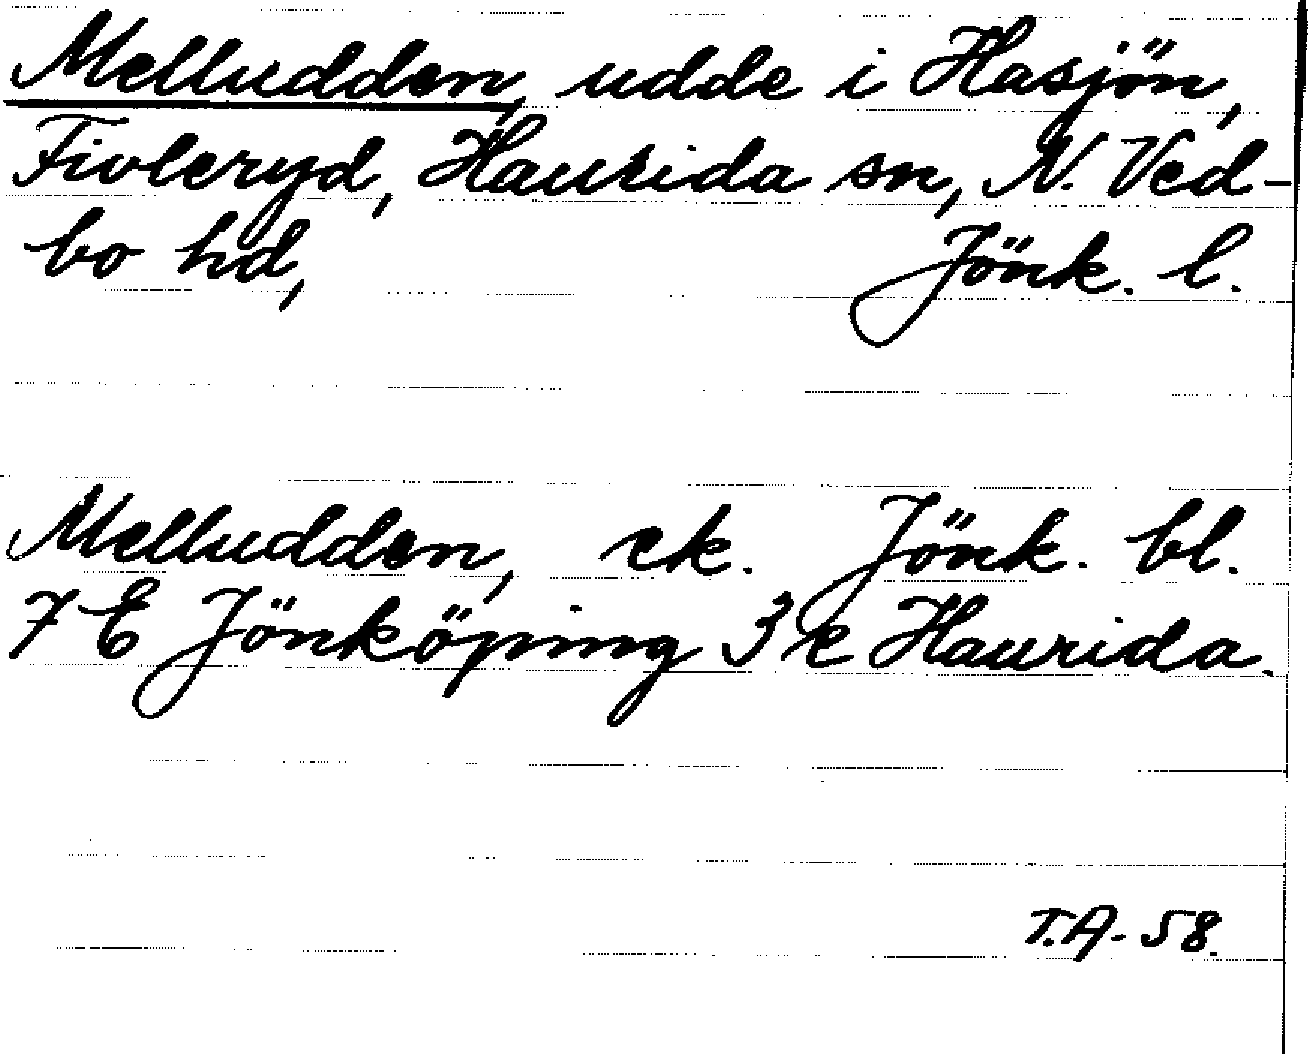 Melludden, udde i Hasjön,
Fivleryd, Haurida sn, N. Ved-
bo hd, Jönk. l.
Melludden, ek. Jönk. bl.
7 E Jönköping 3 e Haurida.
T.A. 58.